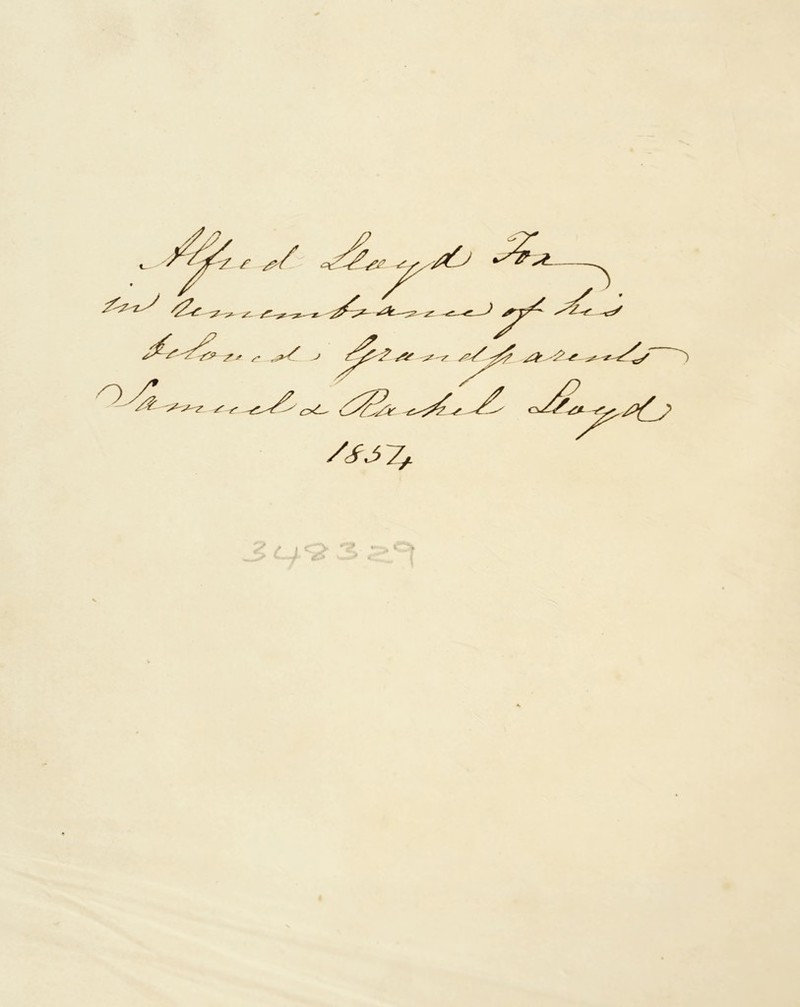 Alfred Lloyd Fox
in remembrance of his
beloved Grandparents
Samuel & Rachel Lloyd
1854
348329